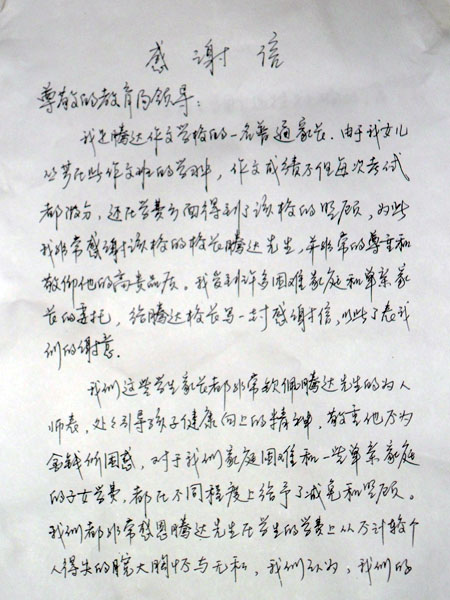 感谢信
尊敬的教育局领导：
我是腾达作文学校的一名普通家长。由于我女儿
此作文班的学习，作文成绩不但每次考试
都满分，还在学费方面得到了该校的照顾，为此
我非常感谢该校的校长腾达先生，并非常的尊重和
敬仰他的高贵品质。我受到许多困难家庭和单亲家
长的委托，给腾达校长写一封感谢信，以此了表我
们的谢意。
我们这些学生家长都非常钦佩腾达先生的为人
师表，处处引导孩子健康向上的精神，敬重他不为
金钱所困惑，对于我们家庭困难和一些单亲家庭
的子女学费，都在不同程度上给予了减免和照顾。
我们都非常感恩腾达先生在学生的学费上从不计较个
人得失的宽大胸怀与无私，我们认为，我们的